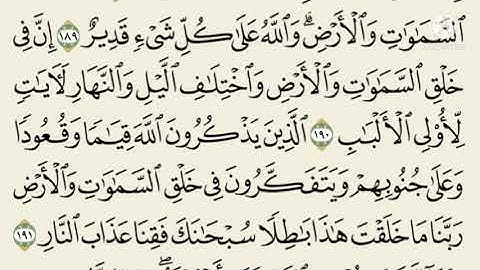 السَّمَاوَاتِ وَالْأَرْضِ ۗ وَاللَّهُ عَلَىٰ كُلِّ شَيْءٍ قَدِيرٌ ١٨٩ إِنَّ فِي
خَلْقِ السَّمَاوَاتِ وَالْأَرْضِ وَاخْتِلَافِ اللَّيْلِ وَالنَّهَارِ لَآيَاتٍ
لِّأُولِي الْأَلْبَابِ ١٩٠ الَّذِينَ يَذْكُرُونَ اللَّهَ قِيَامًا وَقُعُودًا
وَعَلَىٰ جُنُوبِهِمْ وَيَتَفَكَّرُونَ فِي خَلْقِ السَّمَاوَاتِ وَالْأَرْضِ
رَبَّنَا مَا خَلَقْتَ هَٰذَا بَاطِلًا سُبْحَانَكَ فَقِنَا عَذَابَ النَّارِ ١٩١